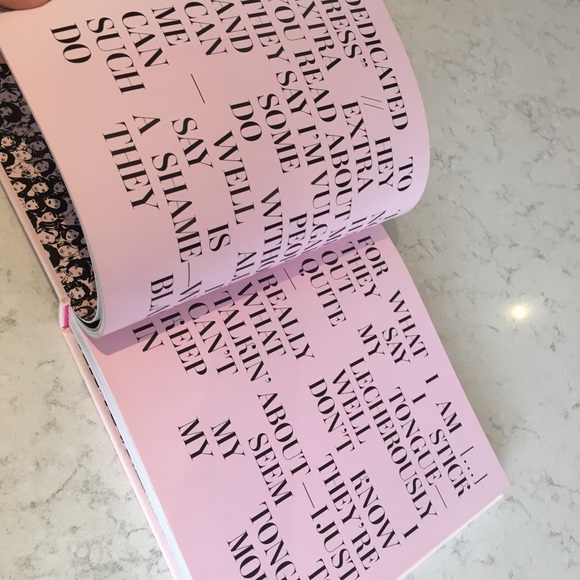 DEDICATED TO
RESS" // HEY
EXTRA EXTRA
YOU READ ABOUT
THEY SAY I'M VULGA
AND SOME PE
CAN DO WITH
ME — WELL AL
CAN SAY IS
SUCH A SHAME—
DO THEY BLA
FOR WHAT I AM [...]
THEY SAY I STICK
OUT MY TONGUE—
QUITE LECHEROUSLY
— WELL I
REALLY DON'T KNOW
WHAT THEY'RE
TALKIN' ABOUT—I JUST
CAN'T SEEM T
KEEP MY TONG
IN MY MOU